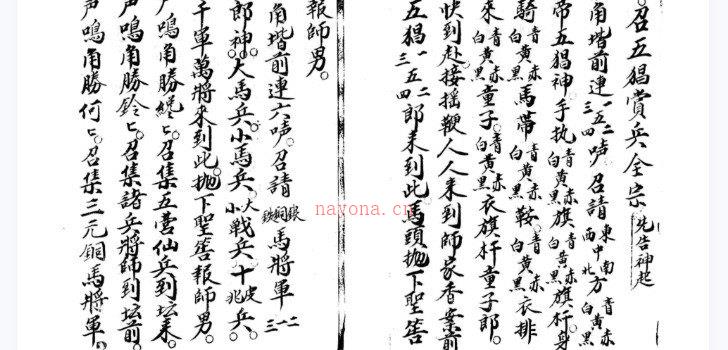 召五猖賞兵全宗 先告神起
角堦前連一二三四五声召請東南中西北方青赤黄白黑
帝五猖神手执青赤黄白黑旗青赤黄白黑旗杆身
騎青赤黄白黑馬帶青赤黄白黑鞍青赤黄白黑衣排
来青赤黄白黑童子青赤黄白黑衣旗杆童子郎
快到赴接摇鞭人人来到師家香案前
五猖一二三四五郎来到此馬頭抛下聖筶
報師男
角堦前連六声召請銀銅鉄馬將軍一二三
郎神大馬兵小馬兵大小戰兵十兵
千軍萬將来到此抛下聖筶報師男
声鳴角勝縂匕召集五营仙兵到坛来
声鳴角勝鈴匕召集諸兵將師到坛前
声鳴角勝何匕召集三元銅馬將軍
nayona.cn